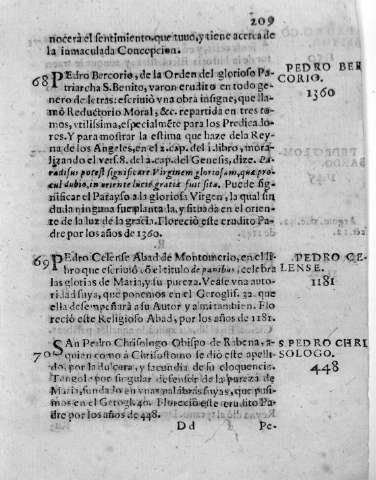 209
nocerà el sentimiento que tuuo, y tiene acerca de
la inmaculada Concepcion.
68 PEdro Bercorio, de la Orden del glorioso Pa-
triarcha S. Benito, varon erudito en todo ge-
nero de letras: escriuiò vna obra insigne, que lla-
mò Reductorio Moral, &c. repartida en tres to-
mos, vtilissima, especialmẽte para los Predicado-
res. Y para mostrar la estima que haze de la Rey-
na de los Angeles, en el 2. cap. del 1. libro, mora-
lizando el vers. 8. del 2. cap. del Genesis, dize. Pa-
radisus potest significare Virginem gloriosam, quæ pro-
cul dubio, in oriente lucis gratiæ fuit sita. Puede sig-
nificar el Parayso a la gloriosa Virgen, la qual sin
duda ninguna fue planta la, y situada en el orien-
te de la luz de la gracia. Floreciò este erudito Pa-
dre por los años de 1360.
PEDRO BER
CORIO.
1360
69 PEdro Celense Abad de Montomerio, en el li-
bro que escriuiò, cõ el titulo de panibus, celebra
las glorias de Maria, y su pureza. Vease vna auto-
ridad suya, que ponemos en el Geroglif. 22. que
ella desempeñarà a su Autor y a mi tambien. Flo
reciò este Religioso Abad, por los años de 1181.
PEDRO CE-
LENSE.
1181
70 SAn Pedro Chrisologo Obispo de Rabena, a
quien como à Chrisostomo se diò este apelli-
do, por la dulçura, y facundia de su eloquencia.
Tengole por singular defensor de la pureza de
Maria, fundado en vnas palabras suyas, que pusi-
mos en el Gerogl. 40. Floreciò este erudito Pa-
dre por los años de 448.
S. PEDRO CHRI
SOLOGO.
448
D d
Pe-